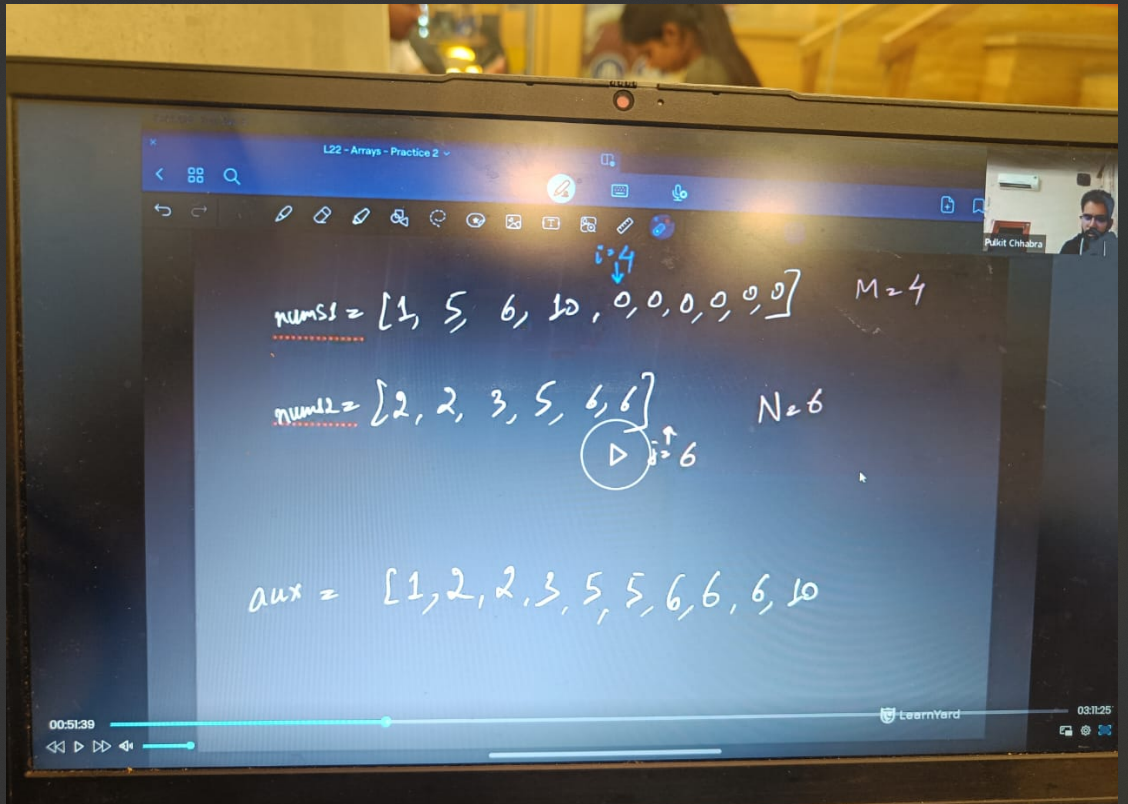 L22 - Arrays - Practice 2
Pulkit Chhabra
i=4
nums1 = [1, 5, 6, 10, 0, 0, 0, 0, 0, 0] M=4
nums2 = [2, 2, 3, 5, 6, 6] N=6
j=6
aux = [1, 2, 2, 3, 5, 5, 6, 6, 6, 10
LearnYard
00:51:39 03:11:25